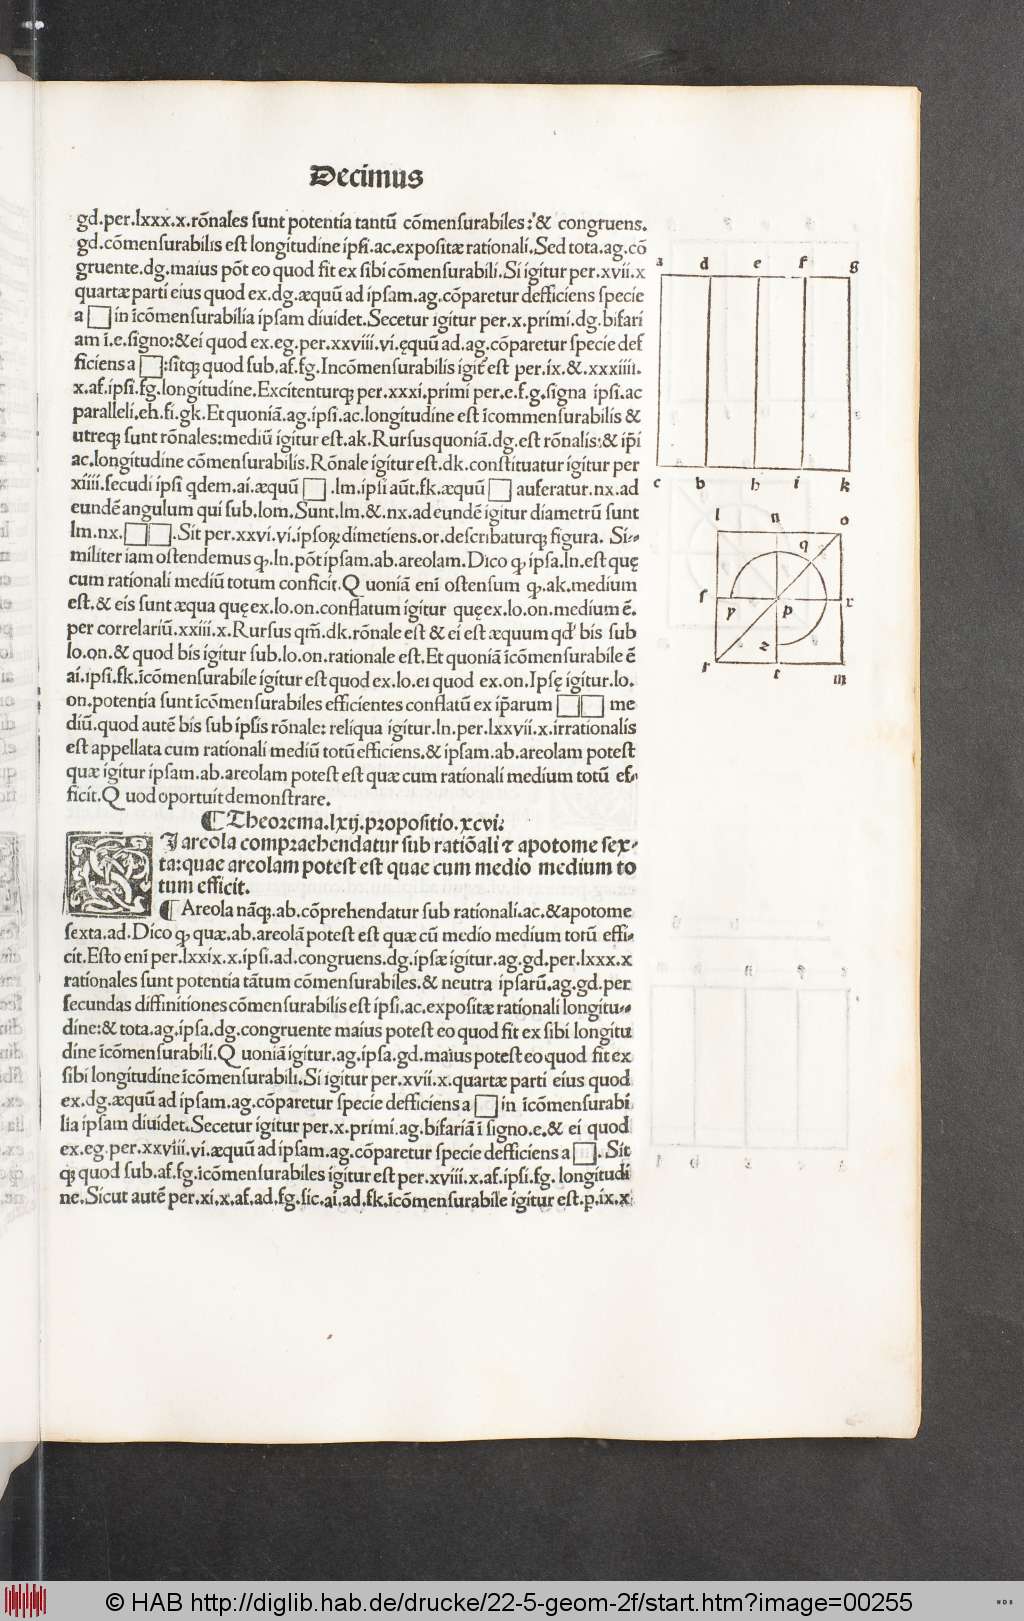 Decimus
gd.per.lxxx.x.rōnales sunt potentia tantū cōmensurabiles:& congruens.
gd.cōmensurabilis est longitudine ipsi.ac.expositæ rationali.Sed tota.ag.cō
gruente.dg.maius pōt eo quod fit ex sibi cōmensurabili.Si igitur per.xvii.x
quartæ parti eius quod ex.dg.æquū ad ipsam.ag.cōparetur defficiens specie
a □ in īcōmensurabilia ipsam diuidet.Secetur igitur per.x.primi.dg.bifari
am ī.e.signo:&ei quod ex.eg.per.xxviii.vi.ęquū ad.ag.cōparetur specie def
ficiens a □:sitq; quod sub.af.fg.Incōmensurabilis igit est per.ix.&.xxxiiii.
x.af.ipsi.fg.longitudine.Excitenturq; per.xxxi.primi per.e.f.g.signa ipsi.ac
paralleli.eh.fi.gk.Et quoniā.ag.ipsi.ac.longitudine est īcommensurabilis &
utreq; sunt rōnales:mediū igitur est.ak.Rursus quoniā.dg.est rōnalis:& ip̄i
ac.longitudine cōmensurabilis.Rōnale igitur est.dk.constituatur igitur per
xiiii.secūdi ipsi qdem.ai.æquū □ .lm.ipsi aūt.fk.æquū □ auferatur.nx.ad
eundē angulum qui sub.lom.Sunt.lm.&.nx.ad eundē igitur diametrū sunt
lm.nx.□□.Sit per.xxvi.vi.ipsoꝝ dimetiens.or.describaturq; figura. Si-
militer iam ostendemus ꝙ.ln.pōt ipsam.ab.areolam.Dico ꝙ ipsa.ln.est quę
cum rationali mediū totum conficit.Q uoniā eni ostensum ꝙ.ak.medium
est.& eis sunt æqua quę ex.lo.on.conflatum igitur quę ex.lo.on.medium ē.
per correlariū.xxiii.x.Rursus qm̄.dk.rōnale est & ei est æquum qd bis sub
lo.on.& quod bis igitur sub.lo.on.rationale est.Et quoniā īcōmensurabile ē
ai.ipsi.fk.īcōmensurabile igitur est quod ex.lo.ei quod ex.on.Ipsę igitur.lo.
on.potentia sunt īcōmensurabiles efficientes conflatū ex ip̄arum □□ me
diū.quod autē bis sub ipsis rōnale: reliqua igitur.ln.per.lxxvii.x.irrationalis
est appellata cum rationali mediū totū efficiens.& ipsam.ab.areolam potest
quæ igitur ipsam.ab.areolam potest est quæ cum rationali medium totū ef-
ficit.Q uod oportuit demonstrare.
¶Theorema.lxij.propositio.xcvi.
SI areola compraehendatur sub ratiōali ⁊ apotome sex-
ta:quae areolam potest est quae cum medio medium to
tum efficit.
¶Areola nāq;.ab.cōprehendatur sub rationali.ac.&apotome
sexta.ad.Dico ꝙ quæ.ab.areolā potest est quæ cū medio medium totū effi-
cit.Esto eni per.lxxix.x.ipsi.ad.congruens.dg.ipsæ igitur.ag.gd.per.lxxx.x
rationales sunt potentia tātum cōmensurabiles.& neutra ipsarū.ag.gd.per
secundas diffinitiones cōmensurabilis est ipsi.ac.expositæ rationali longitu-
dine:& tota.ag.ipsa.dg.congruente maius potest eo quod fit ex sibi longitu
dine īcōmensurabili.Q uoniā igitur.ag.ipsa.gd.maius potest eo quod fit ex
sibi longitudine īcōmensurabili.Si igitur per.xvii.x.quartæ parti eius quod
ex.dg.æquū ad ipsam.ag.cōparetur specie defficiens a □ in īcōmensurabi
lia ipsam diuidet.Secetur igitur per.x.primi.ag.bifariā ī signo.e.& ei quod
ex.eg.per.xxviii.vi.æquū ad ipsam.ag.cōparetur specie defficiens a □. Sit
q; quod sub.af.fg.īcōmensurabiles igitur est per.xviii.x.af.ipsi.fg. longitudi
ne.Sicut autē per.xi.x.af.ad.fg.sic.ai.ad.fk.īcōmensurabile igitur est.p.ix.x.
a d e f g
c b h i k
l n o
q
s y p v
z
r t m
© HAB http://diglib.hab.de/drucke/22-5-geom-2f/start.htm?image=00255